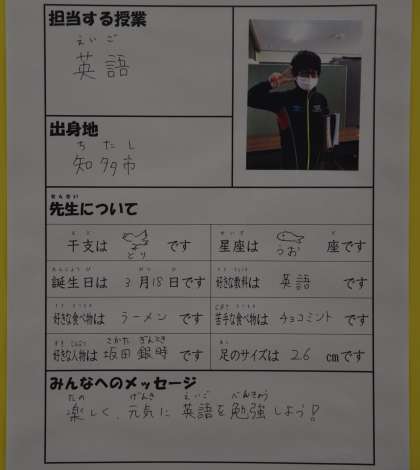 担当する授業
えいご
英語
出身地
ちたし
知多市
せんせい
先生について
えと
干支は とり です
せいざ ざ
星座は うお 座です
たんじょうび がつ にち
誕生日は 3月18日です
すきなきょうか
好きな教科は 英語 です
好きな食べ物は ラーメン です
苦手な食べ物は チョコミント です
さかた ぎんとき
好きな人物は 坂田 銀時 です
あし
足のサイズは 26 cmです
みんなへのメッセージ
たの げんき えいご べんきょう
楽しく、元気に英語を勉強しよう!